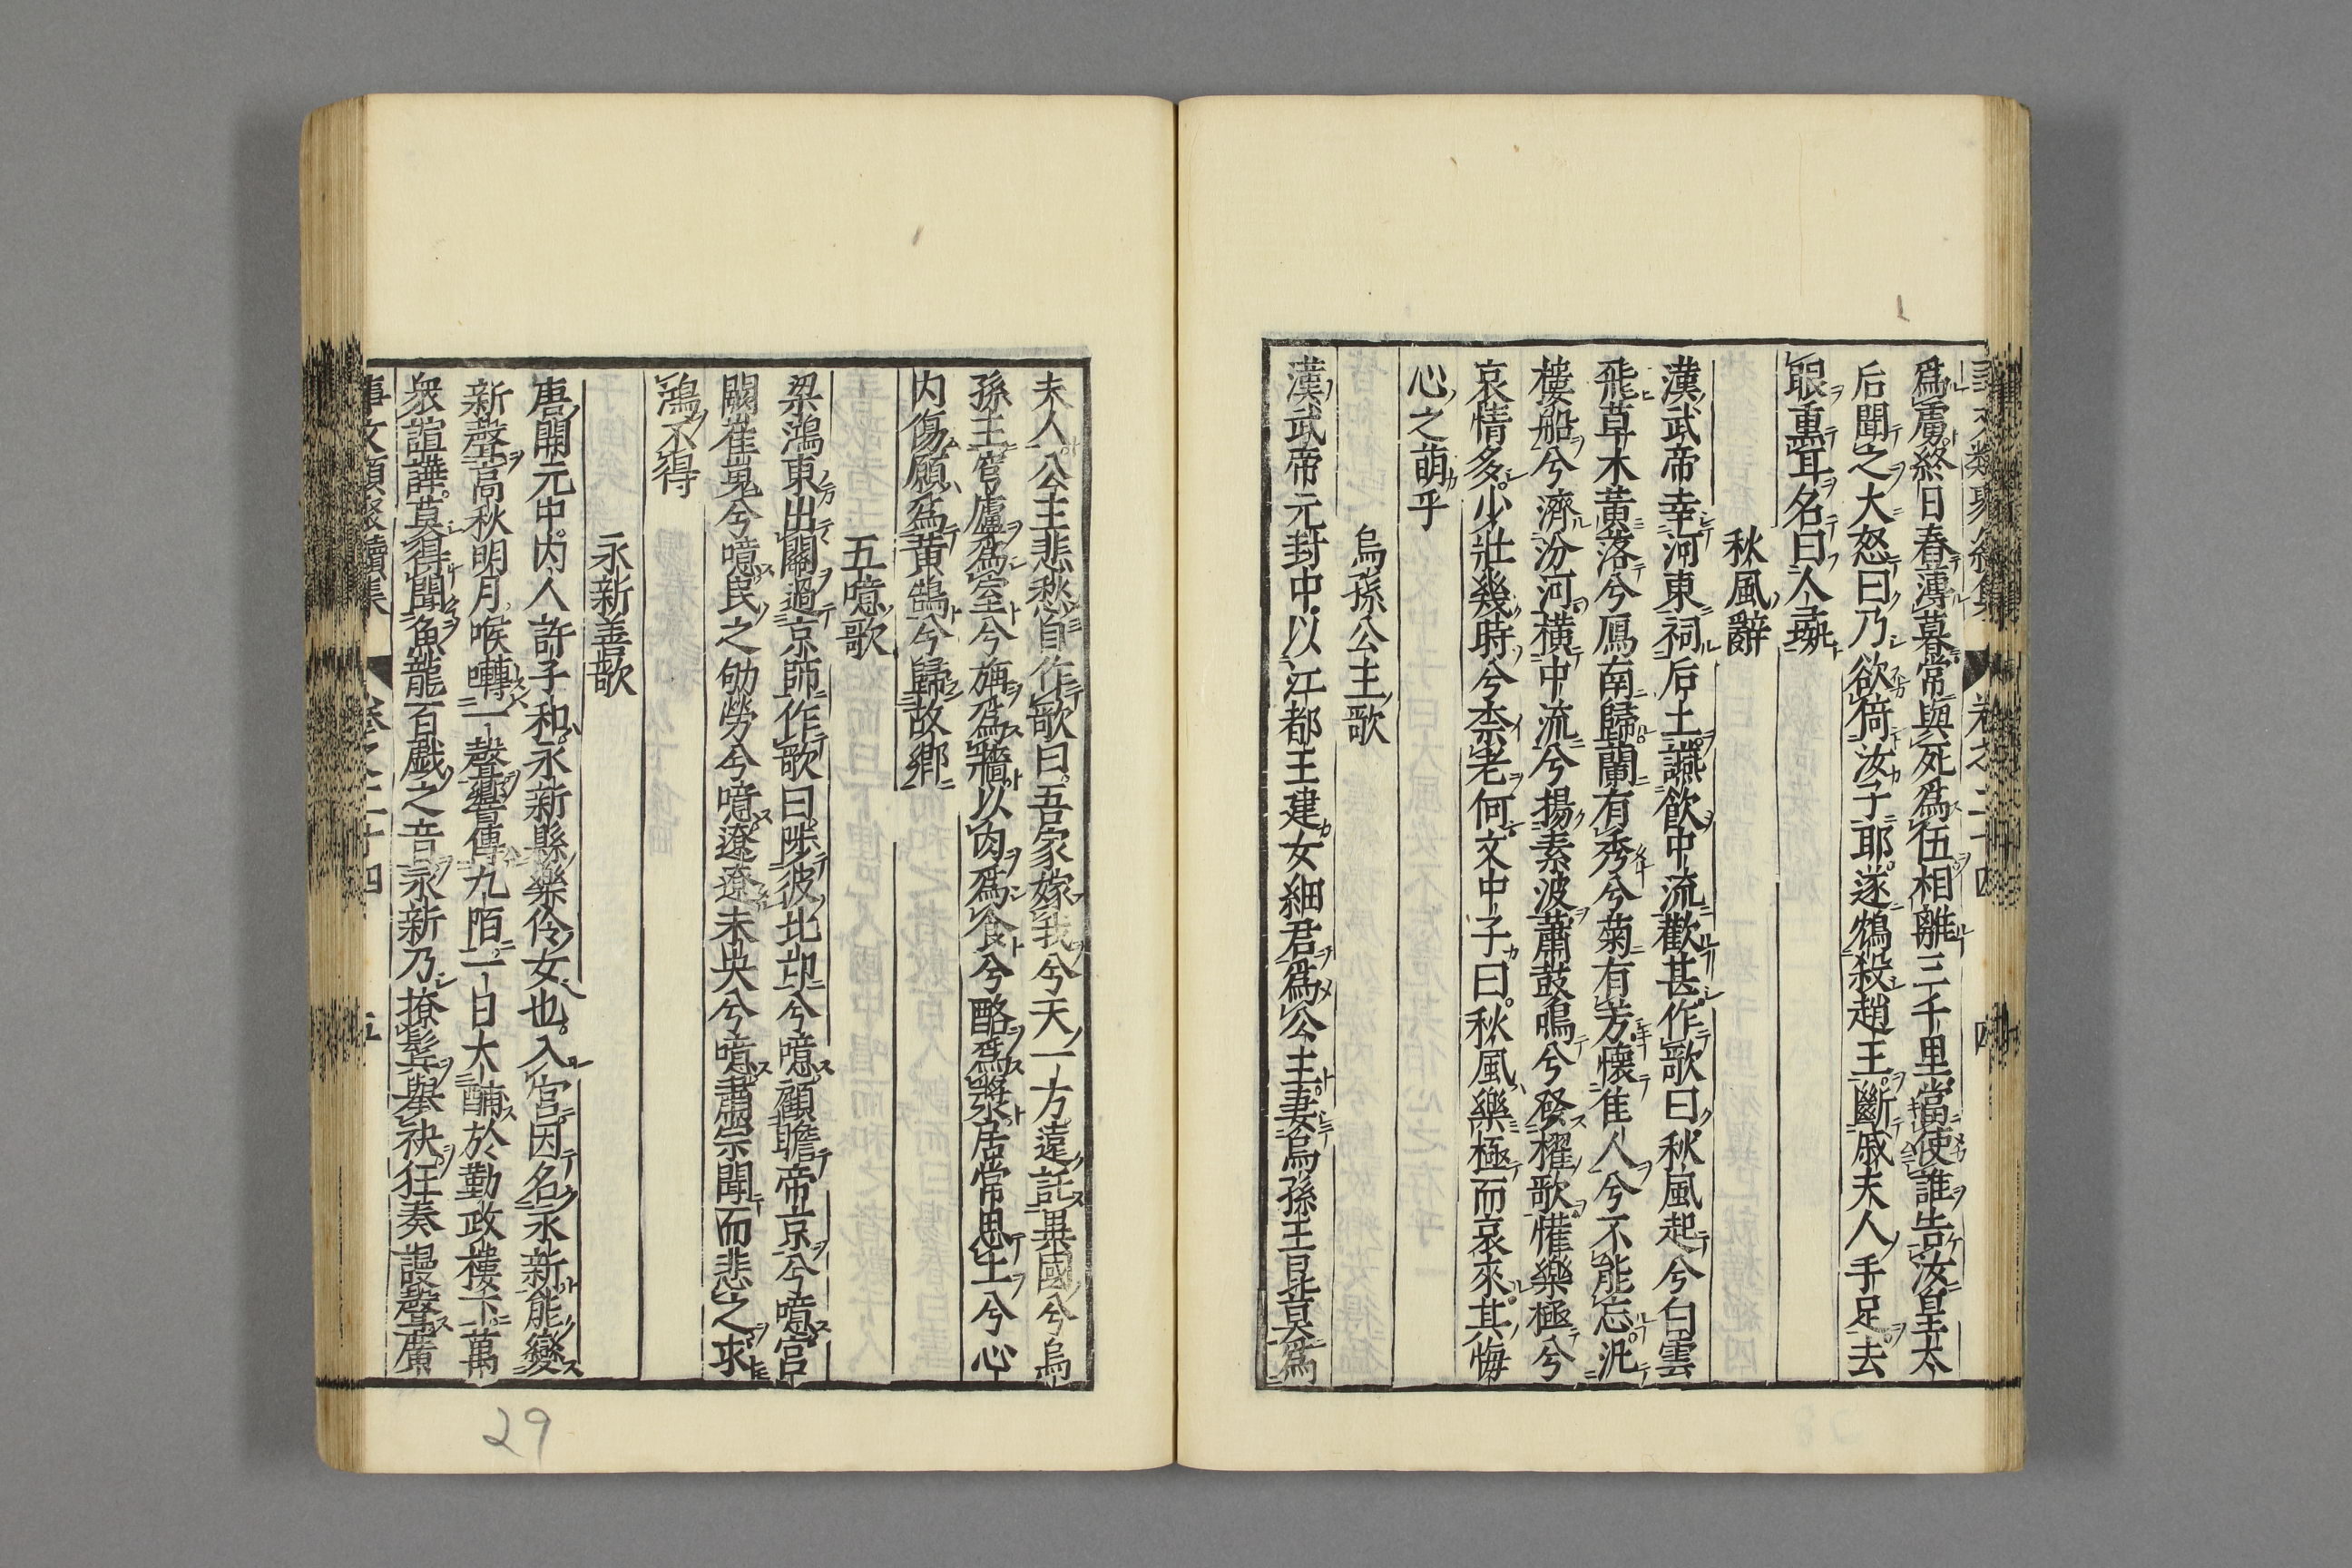 爲虜終日舂薄暮常與死爲伍相離三千里當使誰告汝皇太
后聞之大怒曰乃欲倚汝子耶遂鴆殺趙王斷戚夫人手足去
眼熏耳名曰人彘
秋風辭
漢武帝幸河東祠后土讌飲中流歡甚作歌曰秋風起兮白雲
飛草木黄落兮鴈南歸蘭有秀兮菊有芳懷佳人兮不能忘汎
樓船兮濟汾河横中流兮揚素波簫鼓鳴兮發櫂歌懽樂極兮
哀情多少壯幾時兮柰老何文中子曰秋風樂極而哀來其悔
心之萌乎
烏孫公主歌
漢武帝元封中以江都王建女細君爲公主妻烏孫王昆莫爲
夫人公主悲愁自作歌曰吾家嫁我兮天一方遠託異國兮烏
孫王穹廬爲室兮旃爲牆以肉爲食兮酪爲漿居常思土兮心
内傷願爲黄鵠兮歸故鄉
五噫歌
梁鴻東出關過京師作歌曰陟彼北邙兮噫顧瞻帝京兮噫宮
闕崔嵬兮噫民之劬勞兮噫遼遼未央兮噫肅宗聞而悲之求
鴻不得
永新善歌
唐開元中内人許子和永新縣樂伶女也入宮因名永新能變
新聲高秋明月喉囀一聲響傳九陌一日大酺於勤政樓下萬
衆諠譁莫得聞魚龍百戯之音永新乃撩鬢舉袂狂奏謾聲廣
29